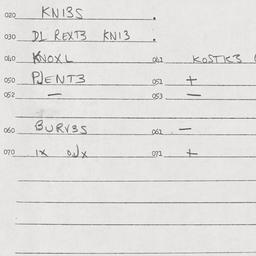 020 KNIBS .
030 DL REXT3 KNI3 .
040 KNOXL 041 KOSTK3
050 PJENT3 051 +
052 — 053 —
060 BURV3S 061 —
070 IX 071 +